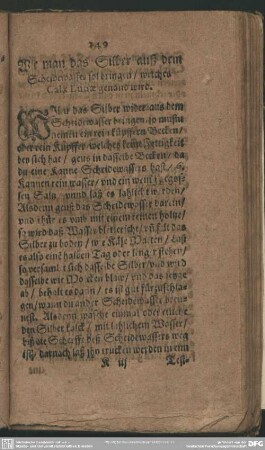 249
Wie man das Silber auß dem
Scheidewasser sol bringen / welches
Calx Lunæ genant wird.
das Silber wider aus dem
Scheidewasser bringen / so mustu
nemen ein rein küpffern Becken /
oder rein Küpffer welches kein Fettigkeit
bey sich hat / geus in dasselbe Becken / da
du eine Kanne Scheidewasser hast / 6.
Kannen rein wasser / und ein wenig gegos-
sen Saltz / unnd laß es
Alsdenn geus das Scheidewasser darein /
und rühr es umb mit einem reinen holtze /
so wird daß Wasser das
Silber zu boden / laß
es also eine halben Tag oder lenger stehen /
so versamlet sich dasselbe Silber / und wird
dasselbe wie Wolcken blaw /
ab / behalt es dann / es ist gut fürzuschla-
gen / wann du ander Scheidewasser bren-
nest. Alsdenn wasche einmal oder etliche
den Silber kalck / mit lieblichem Wasser /
biß alle Scherffe deß Scheidewassers weg
ist / darnach laß ihn trucken werden in eim
Test-